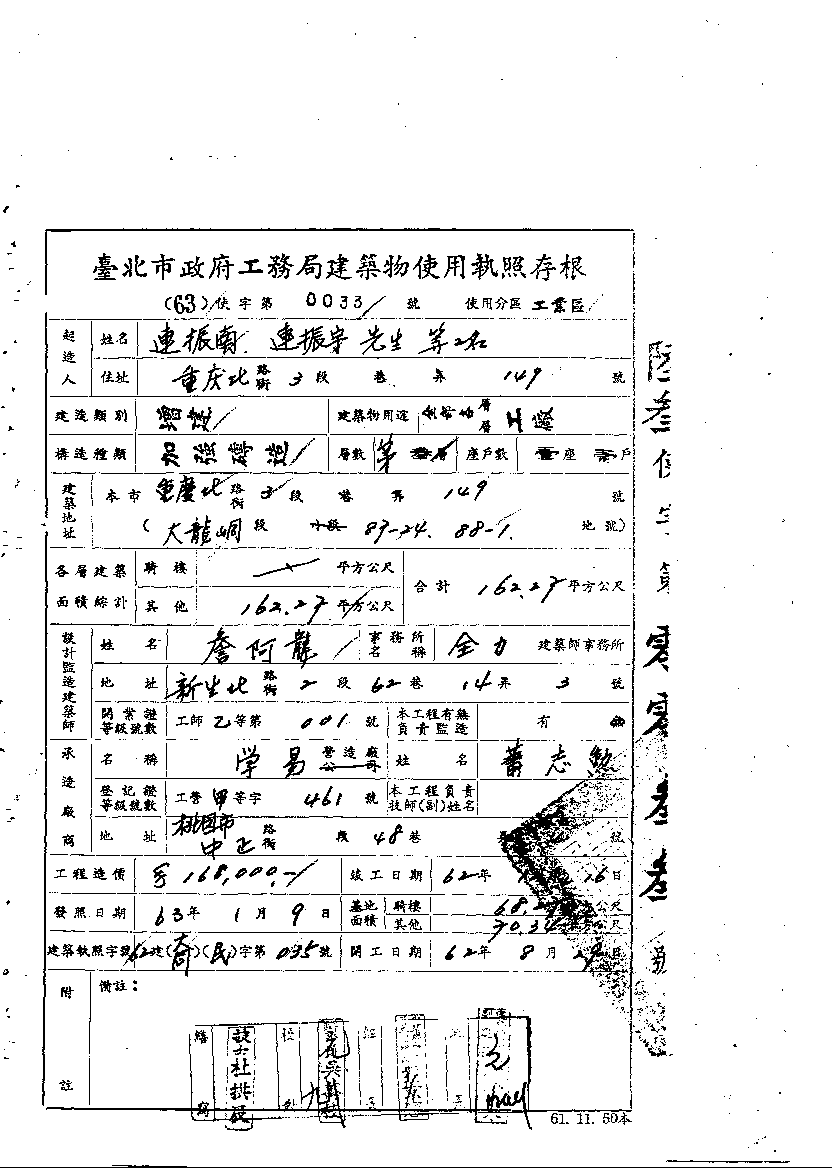 臺北市政府工務局建築物使用執照存根
(63)使字第 0033 號 使用分區 工業區
起造人 姓名 連振南 連振宇 先生 等2名
住址 重庆北 路街 3 段 巷 弄 149 號
建造類別 增建 建築物用途 層層 工廠
構造種類 加強磚造 層數 第 層 座戶數 壹座 戶
建築地址 本市 重慶北 路街 3 段 巷 弄 149 號
(大龍峒段 小段 87-24. 88-1. 地號)
各層建築面積綜計 騎樓 平方公尺 合計 162.27 平方公尺
其他 162.27 平方公尺
設計監造建築師 姓名 詹阿龍 事務所名稱 全力 建築師事務所
地址 新生北 路街 2 段 62 巷 14 弄 3 號
開業證等級號數 工師乙等第 001 號 本工程有無負責監造 有
承造廠商 名稱 学易 營造廠公司 姓名 蕭志
登記證等級號數 工營甲等字 461 號 本工程負責技師(副)姓名
地址 桃園市中正 路街 段 48 巷 號
工程造價 168,000.- 竣工日期 62年 16日
發照日期 63年 1月 9日 基地面積 騎樓 公尺
其他 公尺
建築執照字號 62建( )(民)字第 035 號 開工日期 62年 8月 日
附註 備註：
繕寫 技士杜 校對
61.11.50本
陸叁使字第零零叁叁號